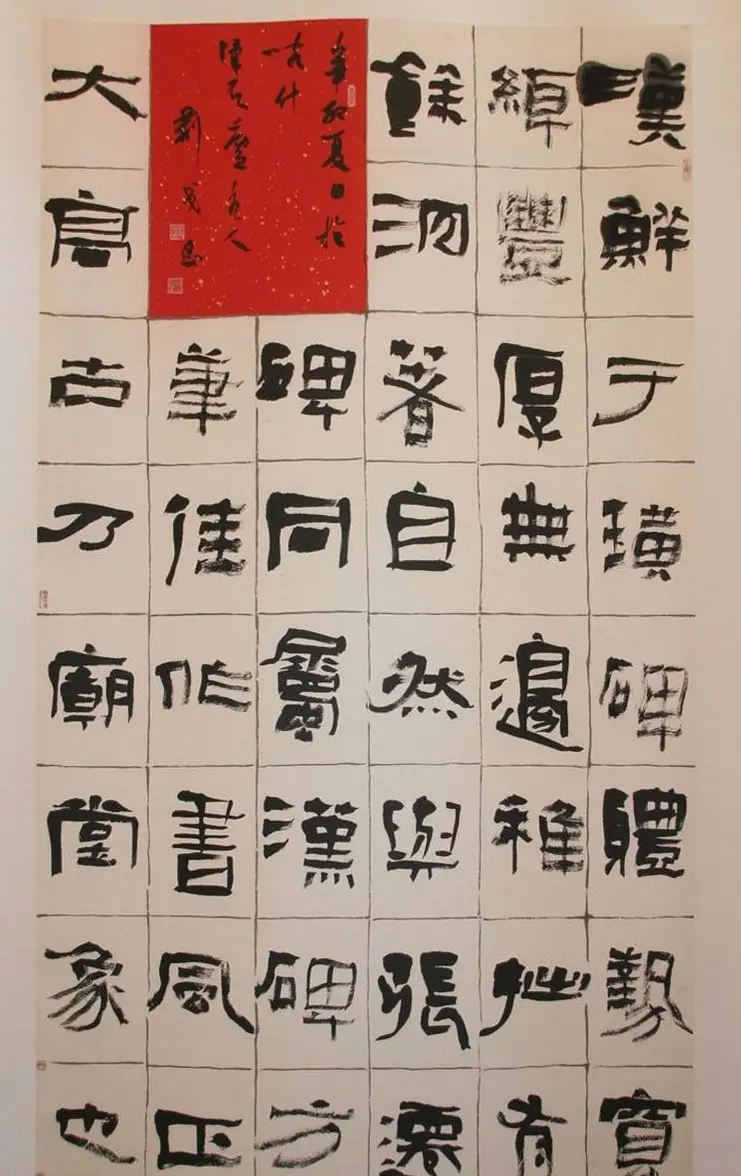 漢鮮于璜碑體勢寬
綽豐厚無邊稚拙有
餘自然與張遷
碑同屬漢碑方
筆佳作書風正
大高古乃廟堂象也
辛卯夏日於
喀什
人
劉